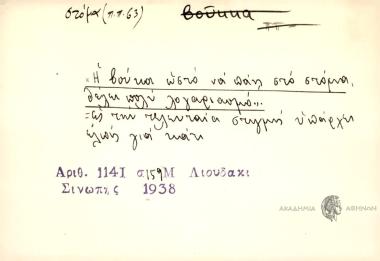 στόμα (π.π. 63) βούκκα
"Ἡ βούκα ὥστό νά πάῃ στό στόμα,
θέλει πολύ λογαριασμό".
= Ὡς τήν τελευταία στιγμή ὑπάρχει
ἐλπίς γιά κάτι
Αριθ. 1141 σ 159 Μ Λιουδάκι
Σινώπης 1938
ΑΚΑΔΗΜΙΑ ΑΘΗΝΩΝ